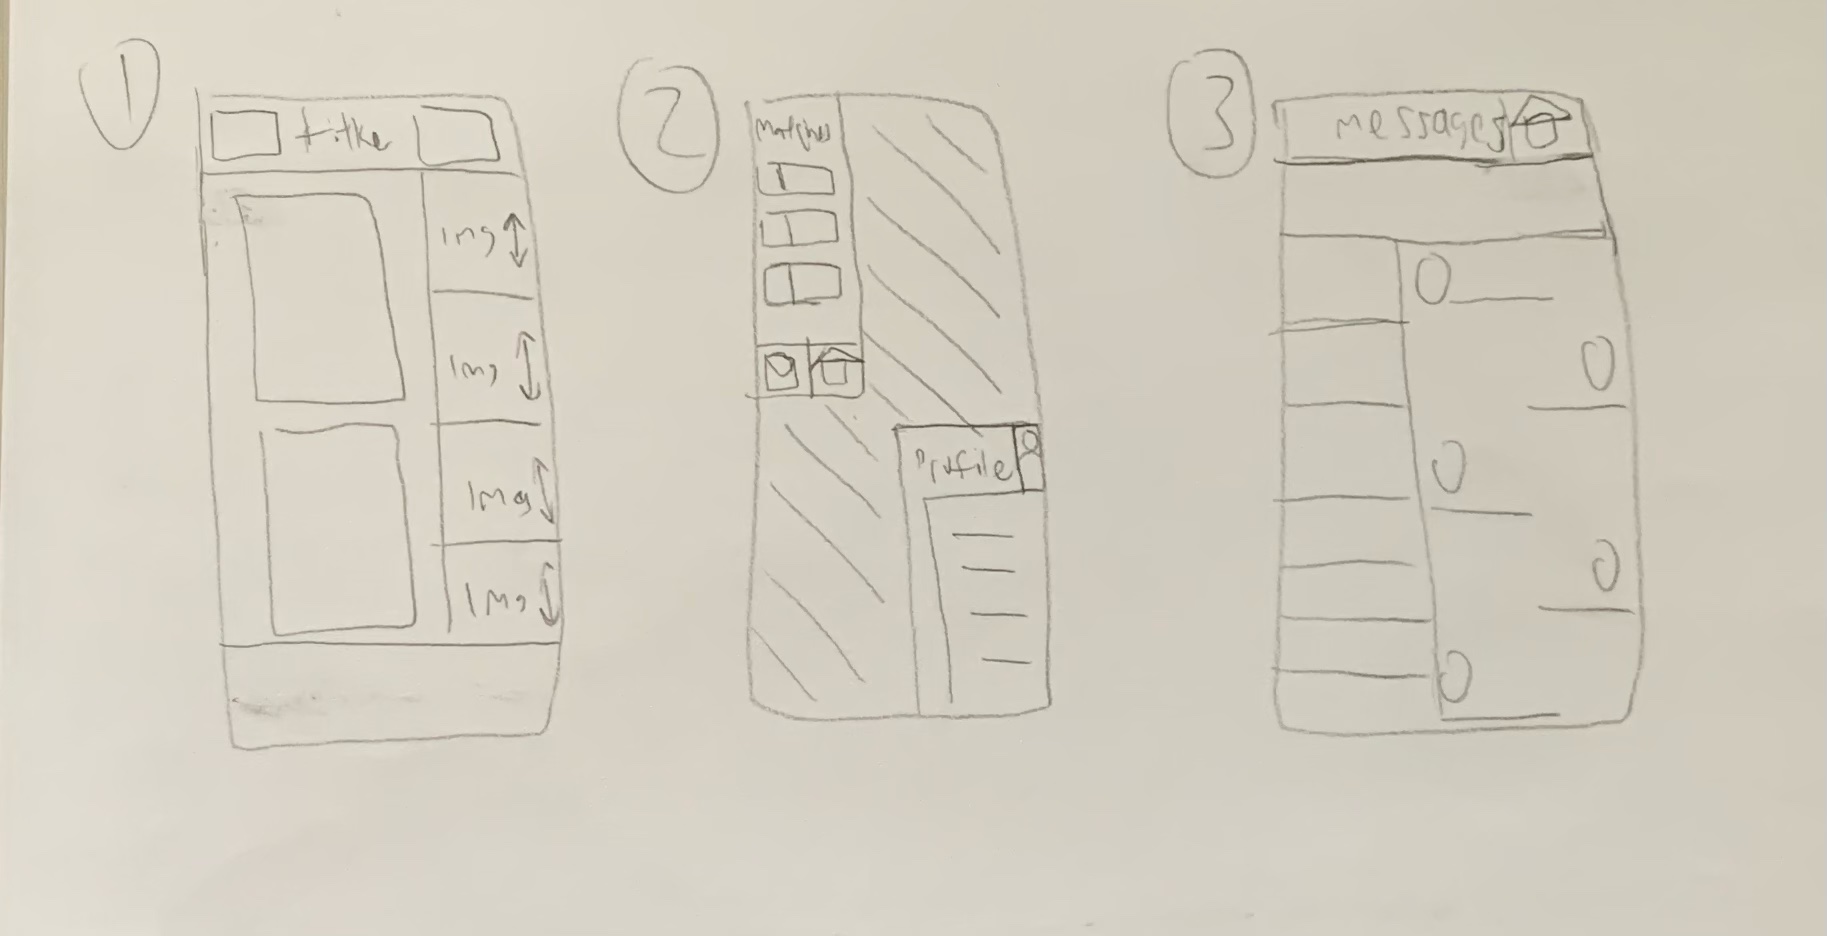 1
titke
Img
Img
Img
Img
2
Matches
Profile
3
messages